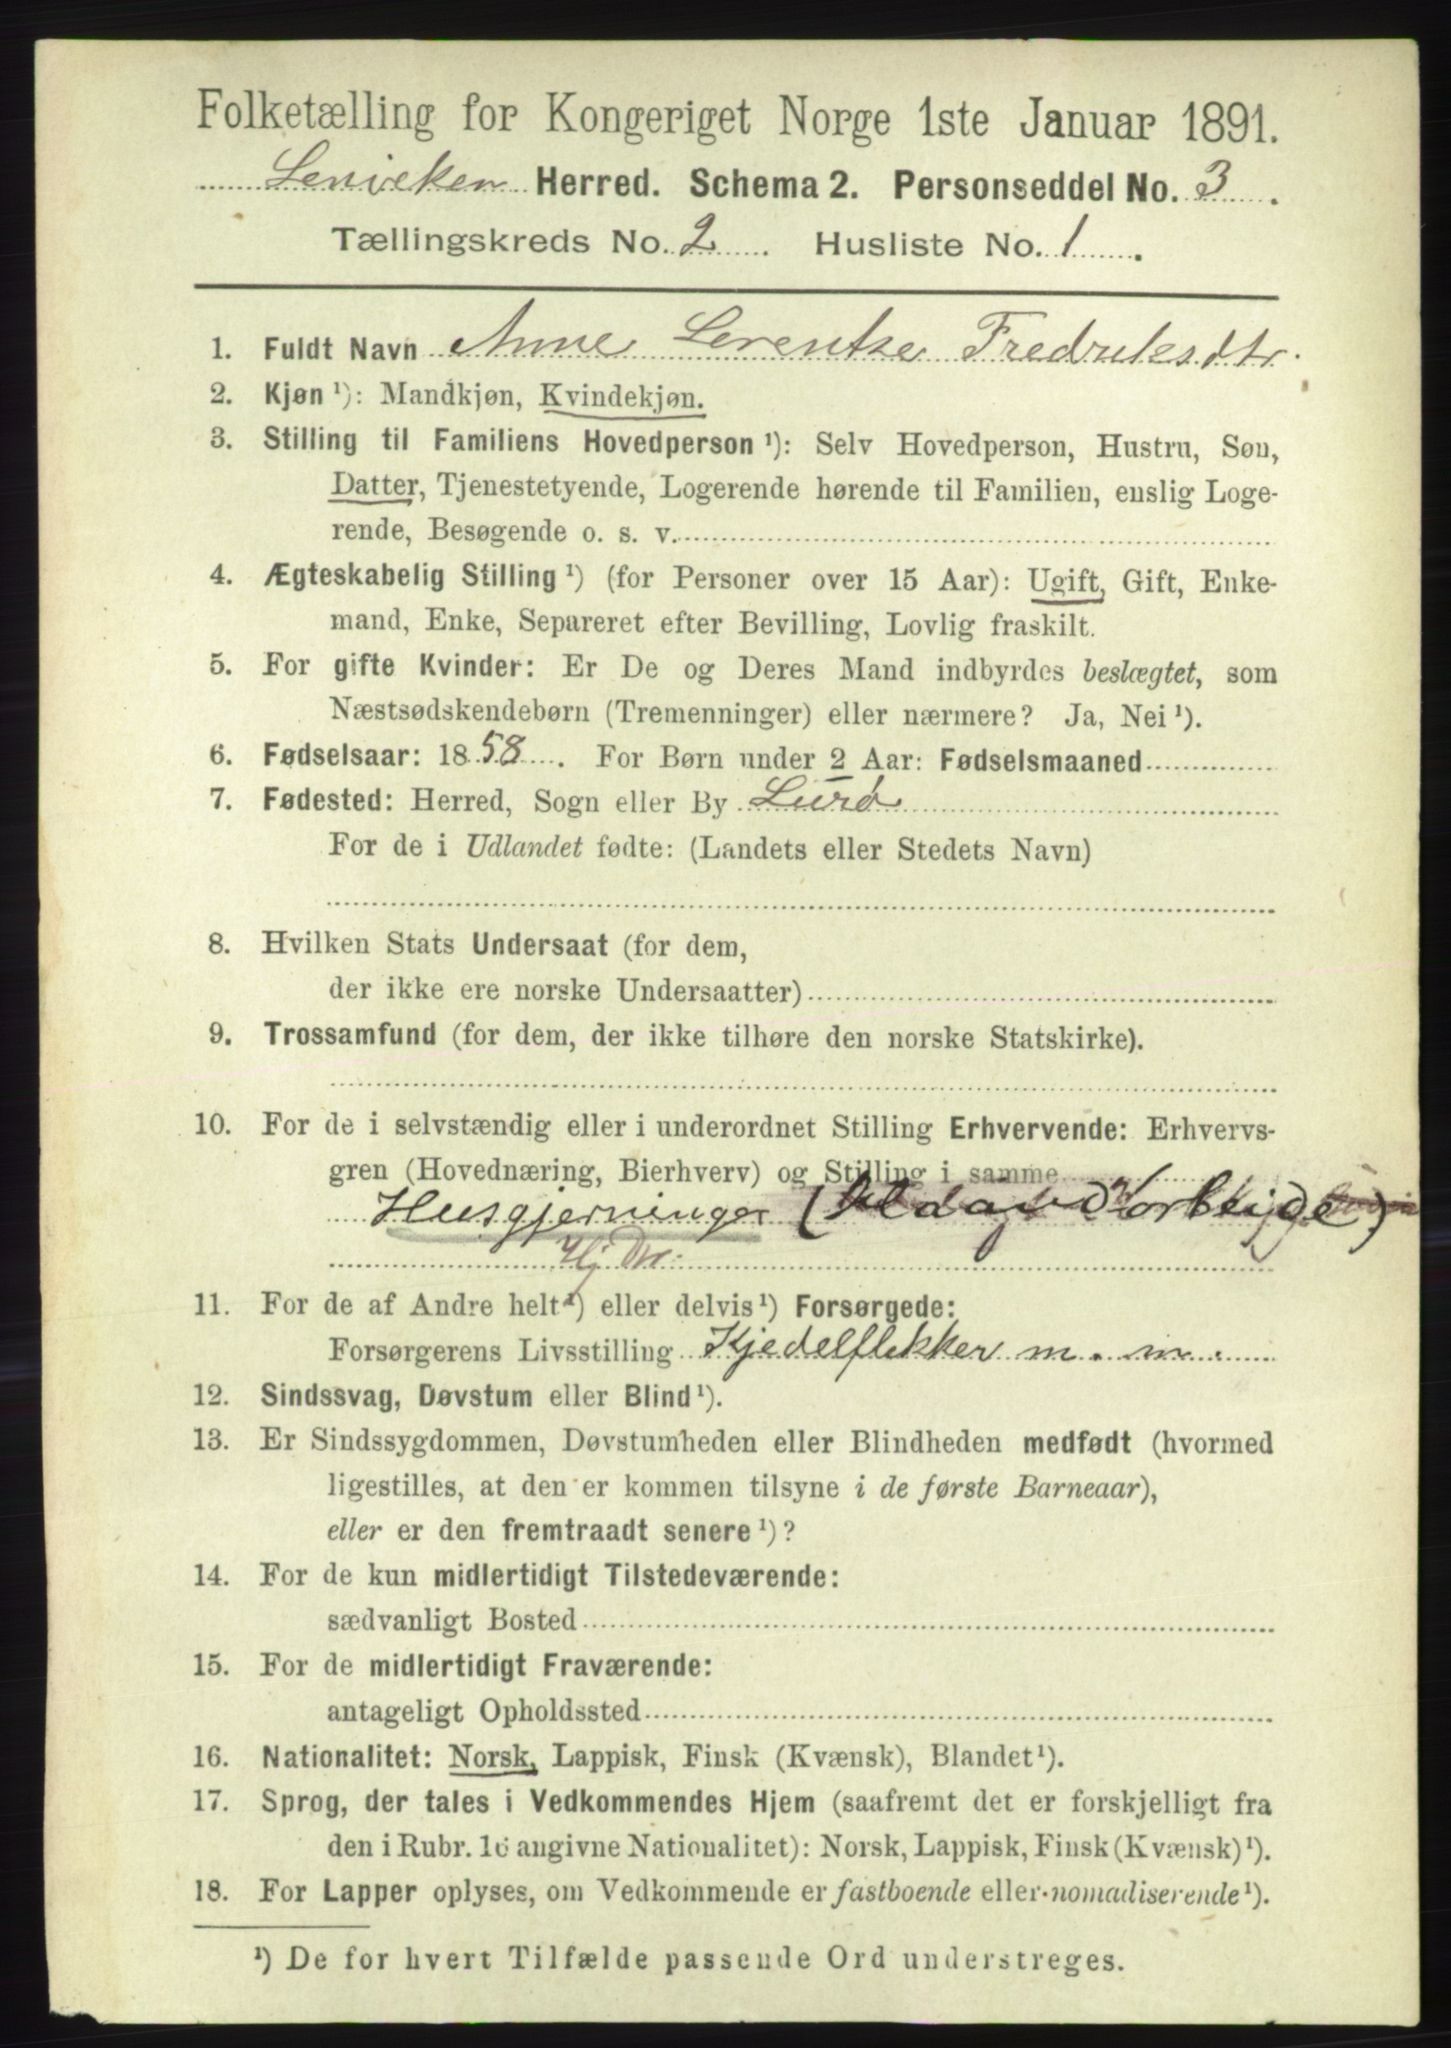 Folketælling for Kongeriget Norge 1ste Januar 1891.
Herred. Schema 2. Personseddel No. 3.
Tællingskreds No. 2. Husliste No. 1.
1. Fuldt Navn Anne Lorentse Fredriksdtr.
2. Kjøn ¹): Mandkjøn, Kvindekjøn.
3. Stilling til Familiens Hovedperson ¹): Selv Hovedperson, Hustru, Søn,
Datter, Tjenestetyende, Logerende hørende til Familien, enslig Loge-
rende, Besøgende o. s. v.
4. Ægteskabelig Stilling ¹) (for Personer over 15 Aar): Ugift, Gift, Enke-
mand, Enke, Separeret efter Bevilling, Lovlig fraskilt.
5. For gifte Kvinder: Er De og Deres Mand indbyrdes beslægtet, som
Næstsødskendebørn (Tremenninger) eller nærmere? Ja, Nei ¹).
6. Fødselsaar: 1858. For Børn under 2 Aar: Fødselsmaaned
7. Fødested: Herred, Sogn eller By Lurø
For de i Udlandet fødte: (Landets eller Stedets Navn)
8. Hvilken Stats Undersaat (for dem,
der ikke ere norske Undersaatter)
9. Trossamfund (for dem, der ikke tilhøre den norske Statskirke).
10. For de i selvstændig eller i underordnet Stilling Erhvervende: Erhvervs-
gren (Hovednæring, Bierhverv) og Stilling i samme
Husgjerninger
Hj Dtr.
11. For de af Andre helt ¹) eller delvis ¹) Forsørgede:
Forsørgerens Livsstilling Kjedelflikker m. m.
12. Sindssvag, Døvstum eller Blind ¹).
13. Er Sindssygdommen, Døvstumheden eller Blindheden medfødt (hvormed
ligestilles, at den er kommen tilsyne i de første Barneaar),
eller er den fremtraadt senere ¹)?
14. For de kun midlertidigt Tilstedeværende:
sædvanligt Bosted
15. For de midlertidigt Fraværende:
antageligt Opholdssted
16. Nationalitet: Norsk, Lappisk, Finsk (Kvænsk), Blandet ¹).
17. Sprog, der tales i Vedkommendes Hjem (saafremt det er forskjelligt fra
den i Rubr. 16 angivne Nationalitet): Norsk, Lappisk, Finsk (Kvænsk) ¹).
18. For Lapper oplyses, om Vedkommende er fastboende eller nomadiserende ¹).
¹) De for hvert Tilfælde passende Ord understreges.